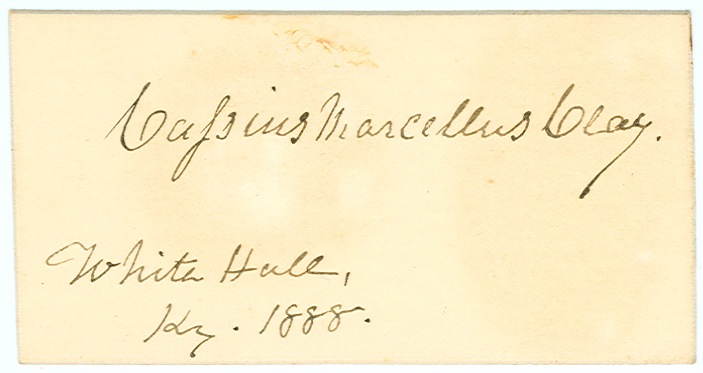 Caſsius Marcellus Clay.
White Hall,
Ky. 1888.